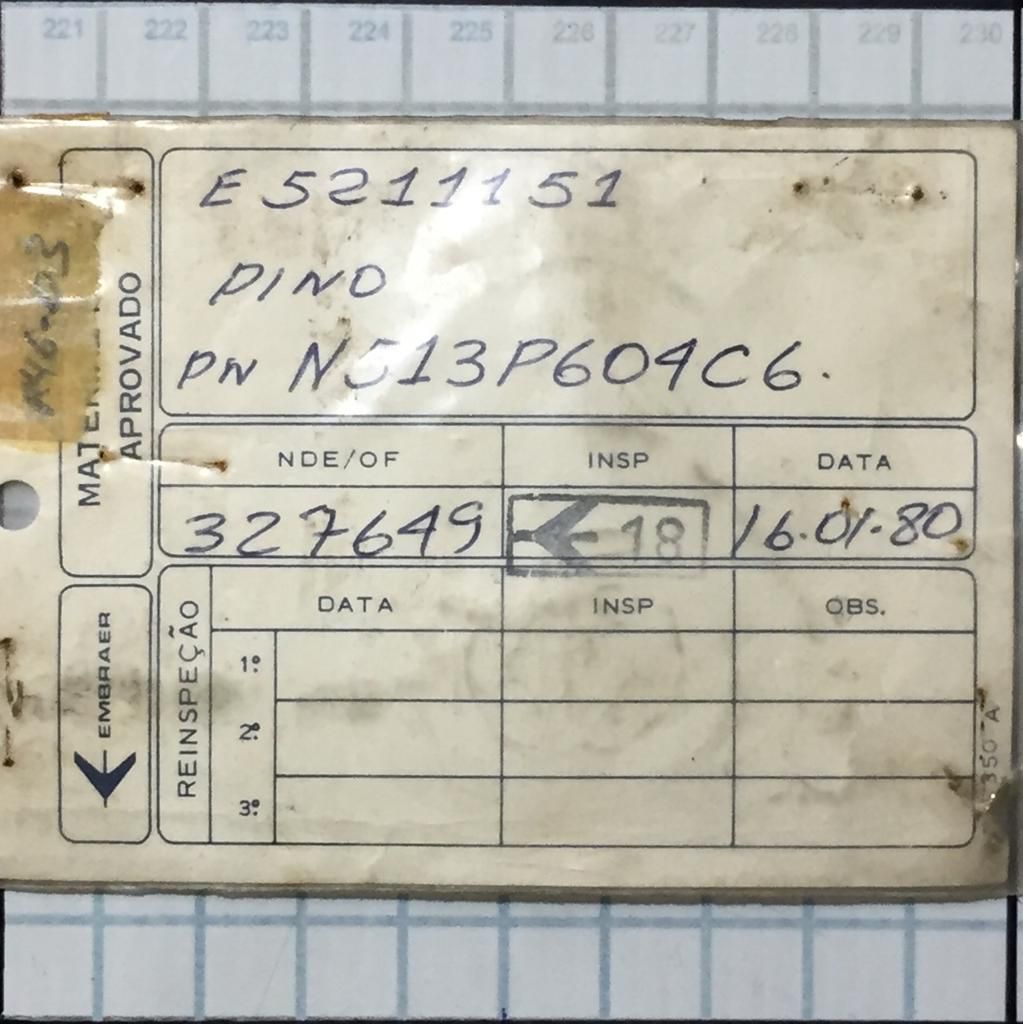 221 222 223 224 225 226 227 228 229 230
E 5211151
PINO
PN N513P604C6.
MATERIAL
APROVADO
NDE/OF INSP DATA
327649 18 16.01.80
EMBRAER
REINSPEÇÃO
DATA INSP OBS.
1º
2º
3º
350 A